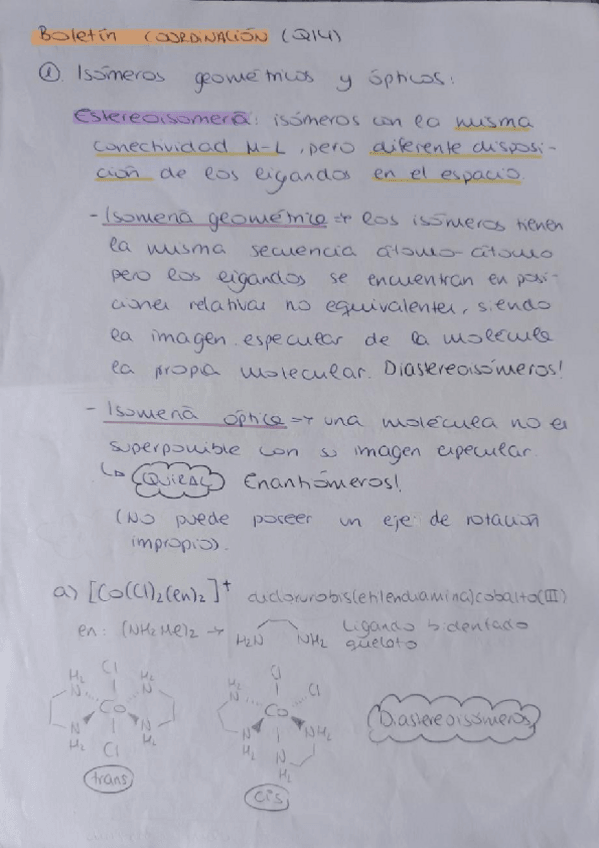 Boletín COORDINACIÓN (Q14)
① Isómeros geométricos y ópticos:
Estereoisomería: isómeros con la misma
conectividad M-L, pero diferente disposi-
ción de los ligandos en el espacio.
- Isomería geométrica → los isómeros tienen
la misma secuencia átomo-átomo
pero los ligandos se encuentran en posi-
ciones relativas no equivalentes, siendo
la imagen especular de la molécula
la propia molecular. Diastereoisómeros!
- Isomería óptica → una molécula no es
superponible con su imagen especular
↳ QUIRAL Enantiómeros!
(No puede poseer un eje de rotación
impropio).
a) [Co(Cl)2(en)2]+ diclorurobis(etilendiamina)cobalto(III)
en: (NH2Me)2 → H2N NH2 Ligando bidentado
quelato
Cl Cl
H2 H2 H2 Cl
N N N
Co Co
N N N NH2
H2 H2 H2 N
Cl H2
Diastereoisómeros
trans cis